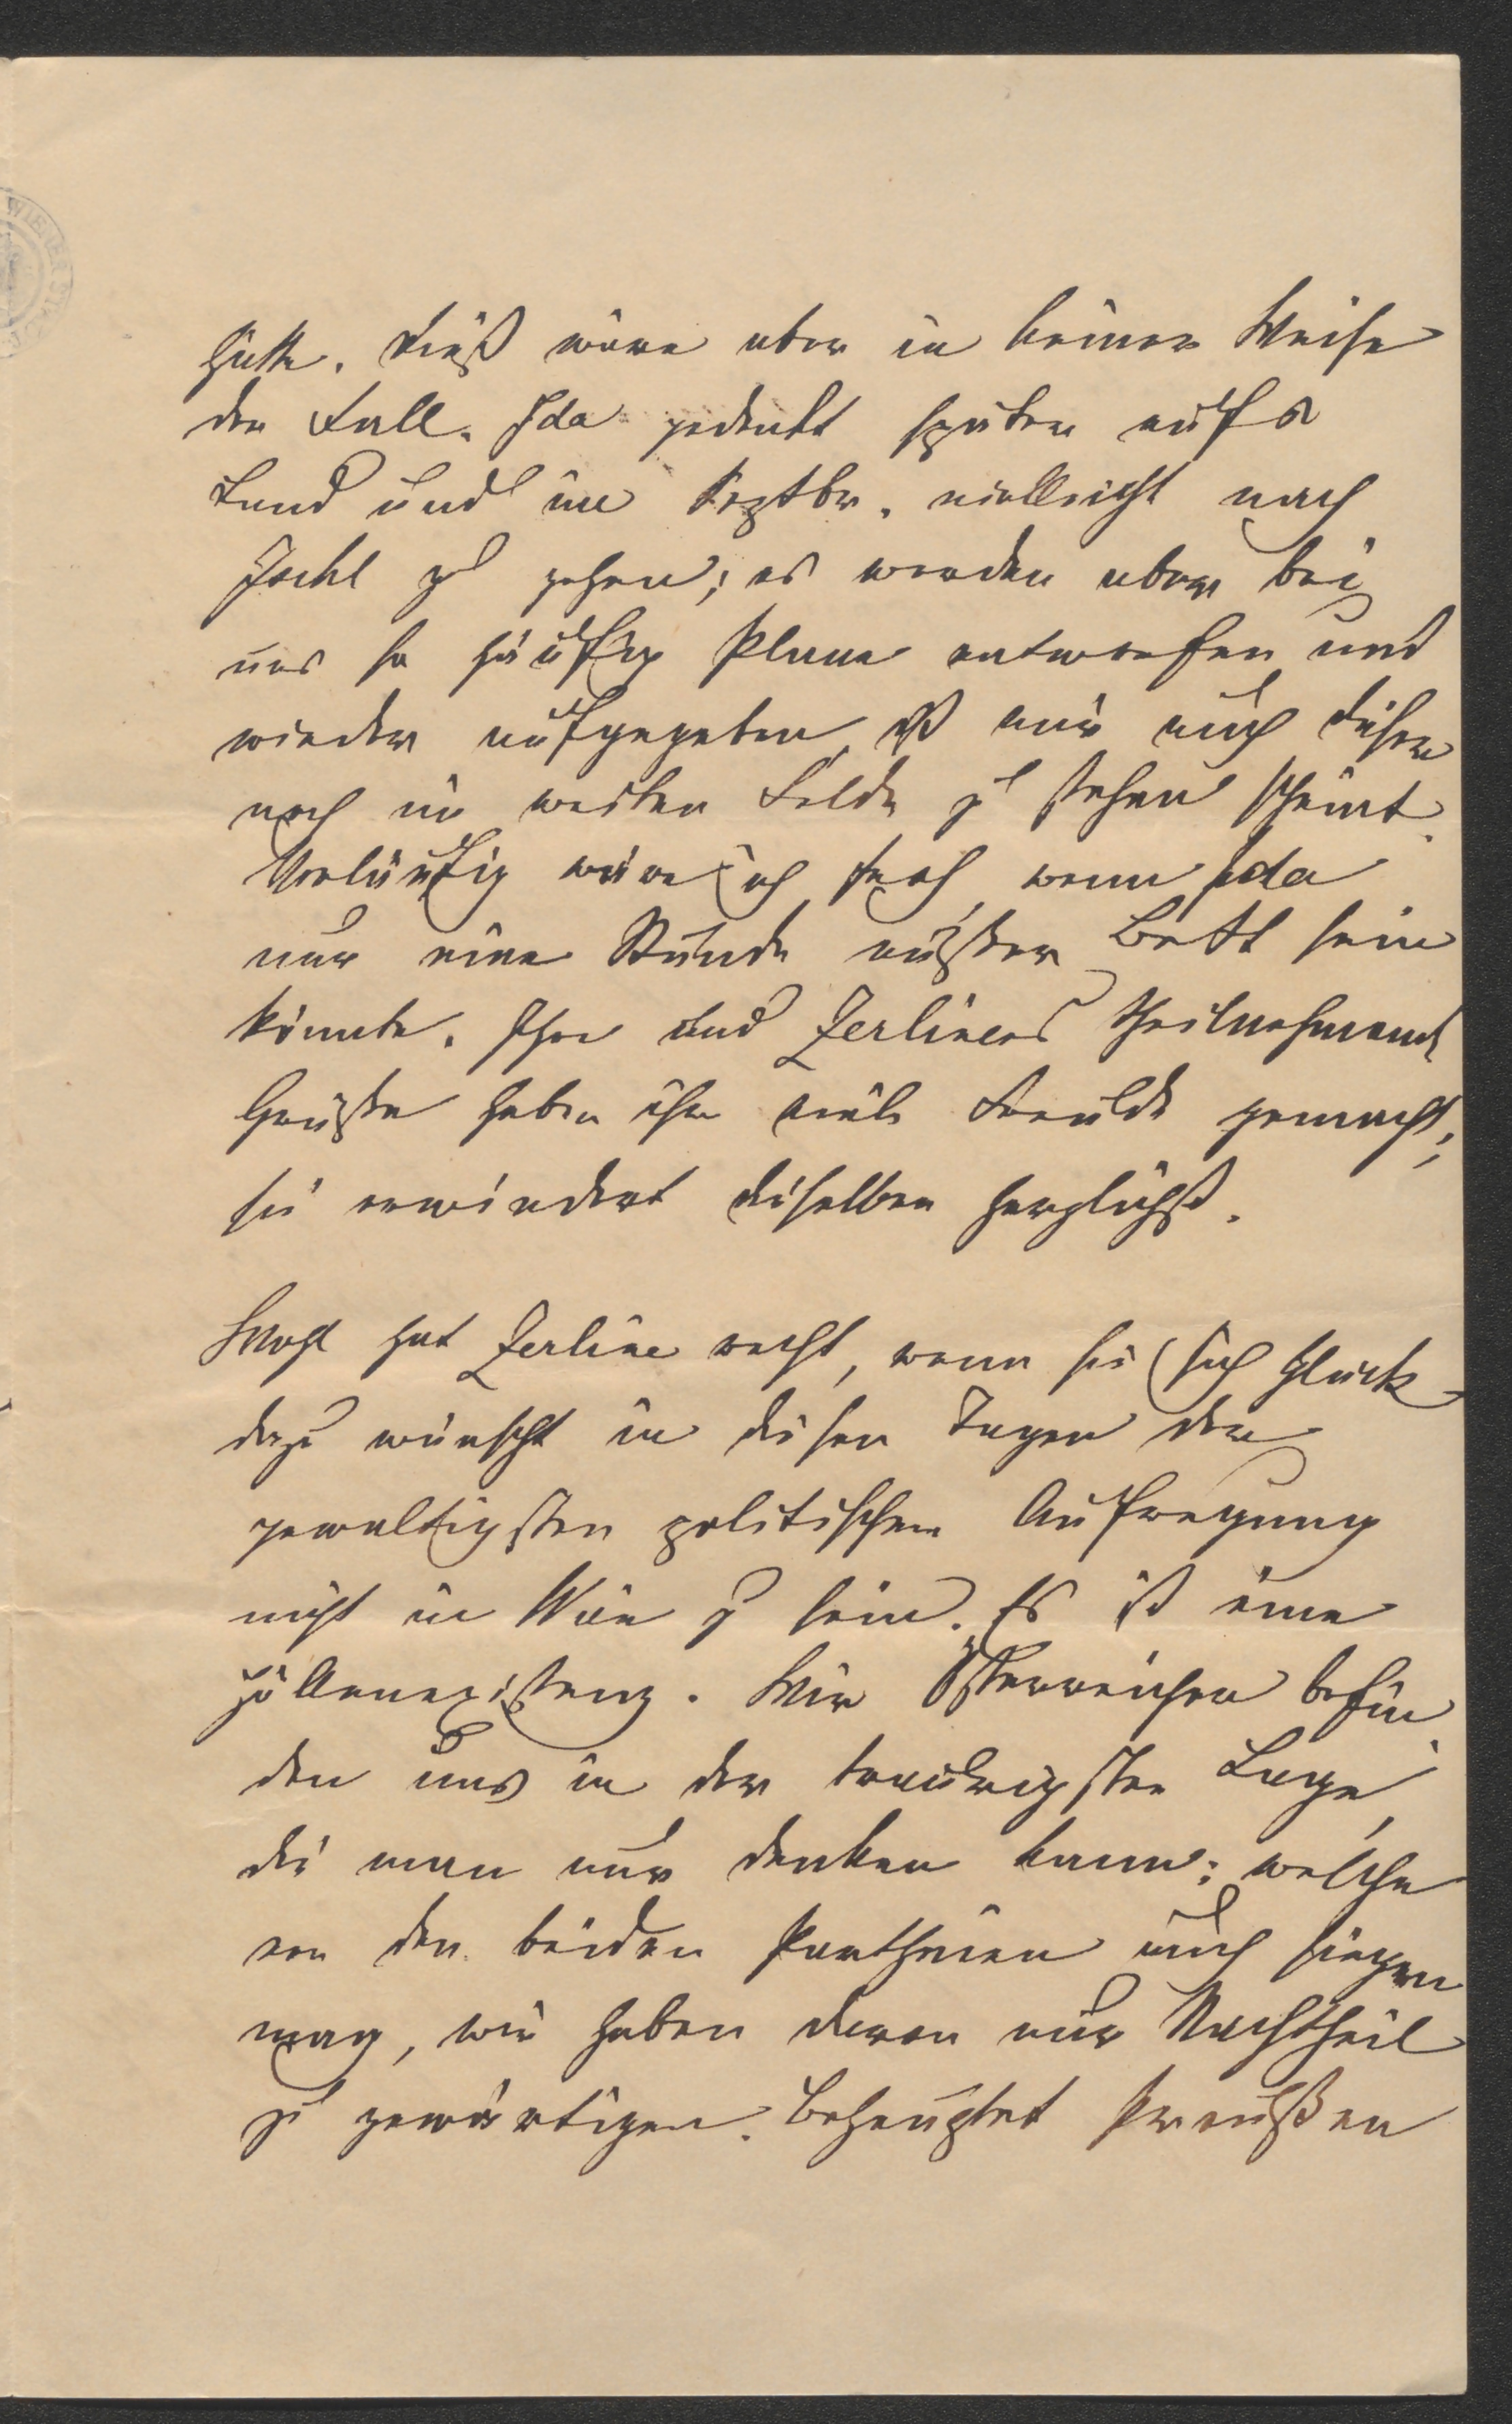 WIENER STADT
hätte. Dieß wäre aber in keiner Weise
der Fall. Ida gedenkt später auf's
Land und im Septbr. vielleicht nach
Ischl zu gehen; es werden aber bei
uns so häufig Plane entworfen und
wieder aufgegeben, dß mir auch dieser
noch im weiten Felde zu stehen scheint.
Vorläufig wäre ich froh, wenn Ida
nur eine Stunde außer Bett sein
könnte. Ihre und Zerlinens theilnehmende
Grüße haben ihr viele Freude gemacht;
sie erwiedert dieselben herzlichst.
Wohl hat Zerline recht, wenn sie sich Glück
dazu wünscht in diesen Tagen der
gewaltigsten politischen Aufregung
nicht in Wien zu sein. Es ist eine
Höllenexistenz. Wir Österreicher befin
den uns in der traurigsten Lage,
die man nur denken kann; welche
von den beiden Partheien auch siegen
mag, wir haben davon nur Nachtheil
zu gewärtigen. Behauptet Preußen